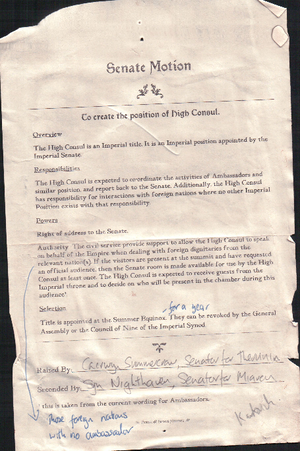 Senate Motion
To create the position of High Consul.
Overview
The High Consul is an Imperial title. It is an Imperial position appointed by the
Imperial Senate.
Responsibilities
The High Consul is expected to coordinate the activities of Ambassadors and
similar position, and report back to the Senate. Additionally, the High Consul
has responsibility for interactions with foreign nations where no other Imperial
Position exists with that responsibility.
Powers
Right of address to the Senate.
Authority. The civil service provide support to allow the High Consul to speak
on behalf of the Empire when dealing with foreign dignitaries from the
relevant nation(s). If the visitors are present at the summit and have requested
an official audience, then the Senate room is made available for use by the High
Consul at least once. The High Consul is expected to receive guests from the
Imperial throne and to decide on who will be present in the chamber during this
audience¹.
for a year
Selection
Title is appointed at the Summer Equinox. They can be revoked by the General
Assembly or the Council of Nine of the Imperial Synod.
Raised By: Senator for
Seconded By: Nighthaven Senator for
¹ this is taken from the current wording for Ambassadors.
Those foreign nations
with no ambassador